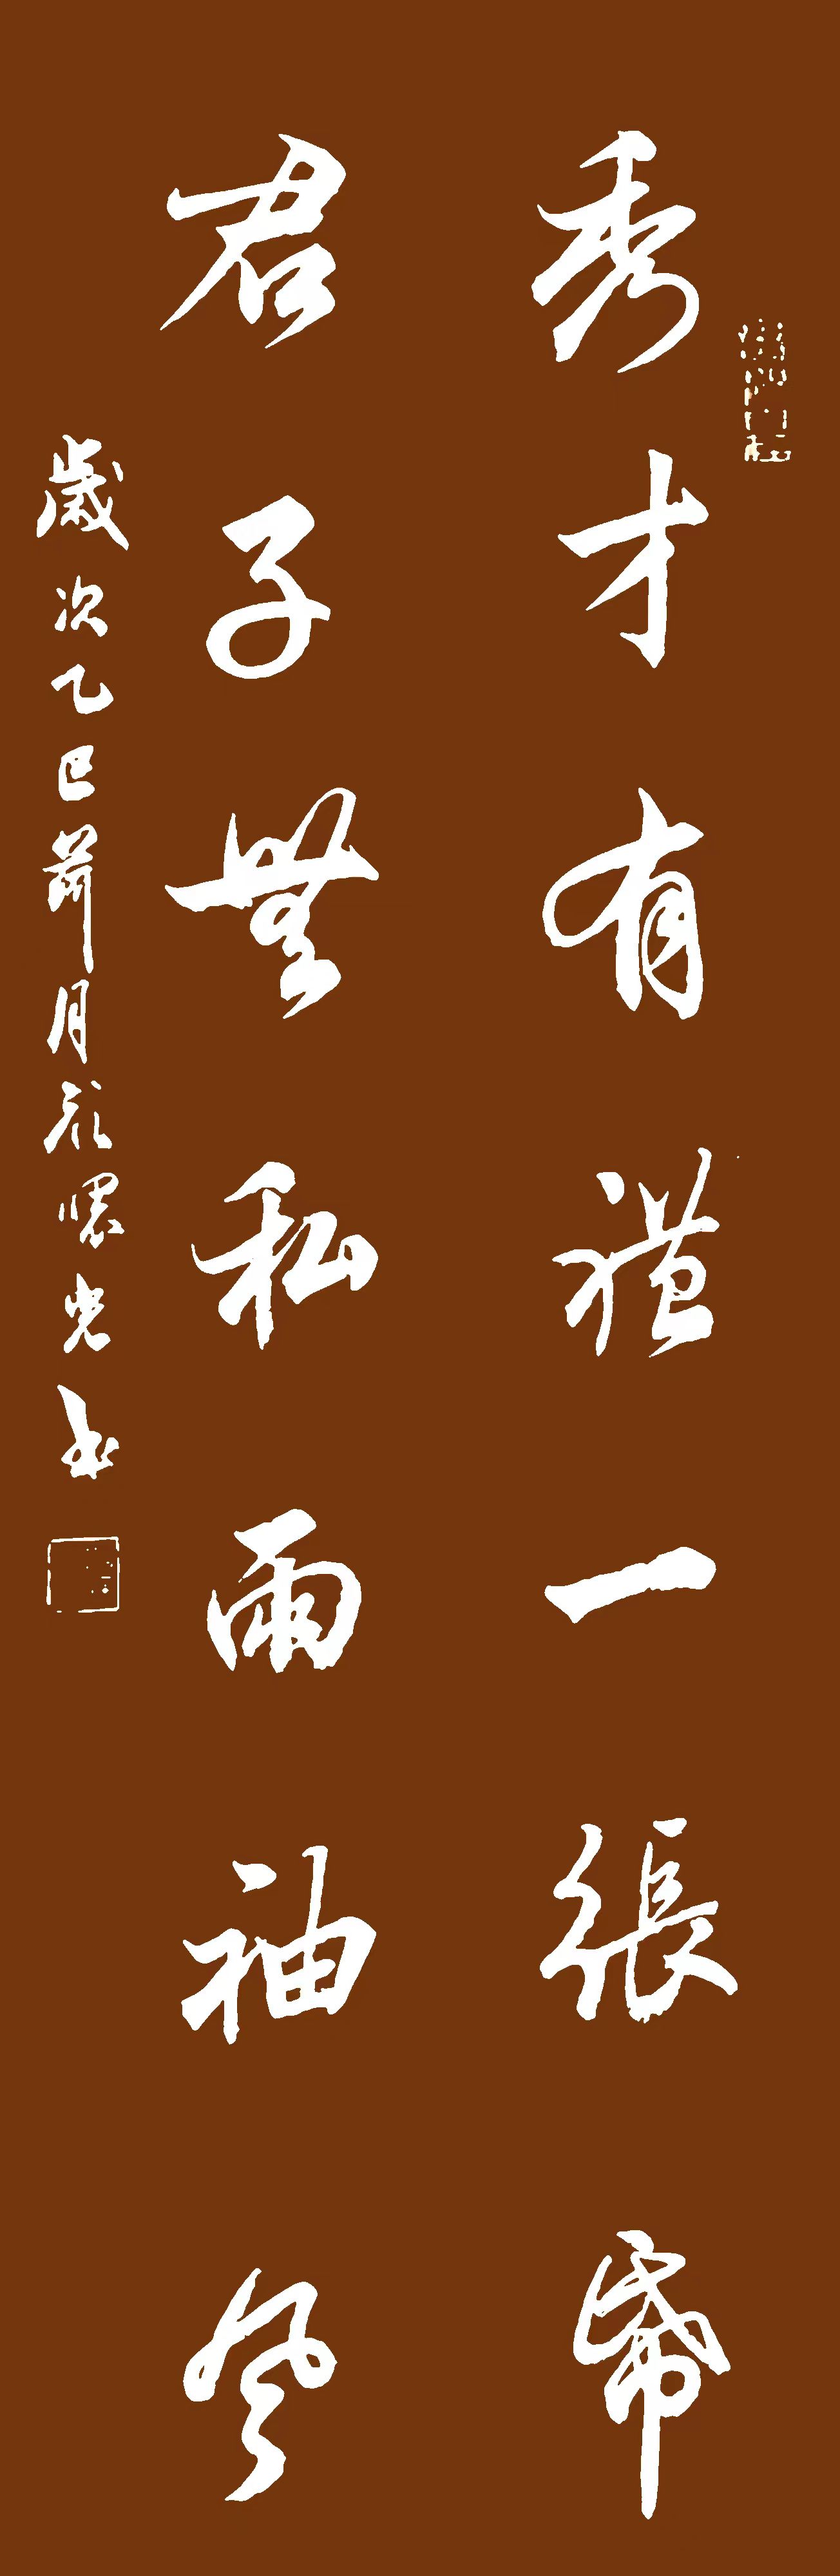 秀才有禮一張帋
君子無私兩袖風
歲次乙巳荷月懷光書